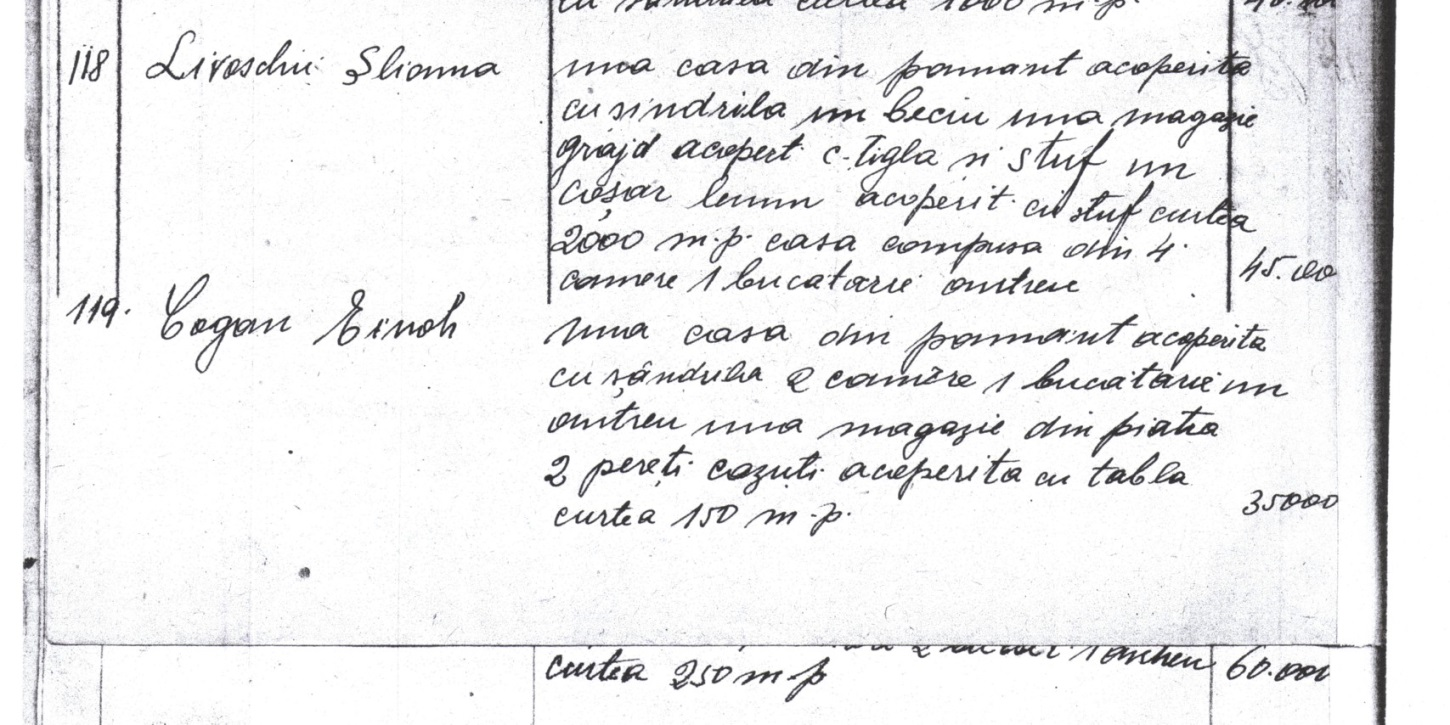 curtea 1000 m.p.
118 Livoschi Șlioma una casa din pamant acoperita
cu sindrila un beciu una magazie
grajd acoperit c. tigla si stuf un
coșar lemn acoperit cu stuf curtea
2000 m.p. casa compusa din 4
camere 1 bucatarie antreu 45.000
119. Cogan Einoh una casa din pamant acoperita
cu șândrila 2 camere 1 bucatarie un
antreu una magazie din piatra
2 pereți cazuti acoperita cu tabla
curtea 150 m.p. 35000
antreu 60.000
curtea 250 m.p